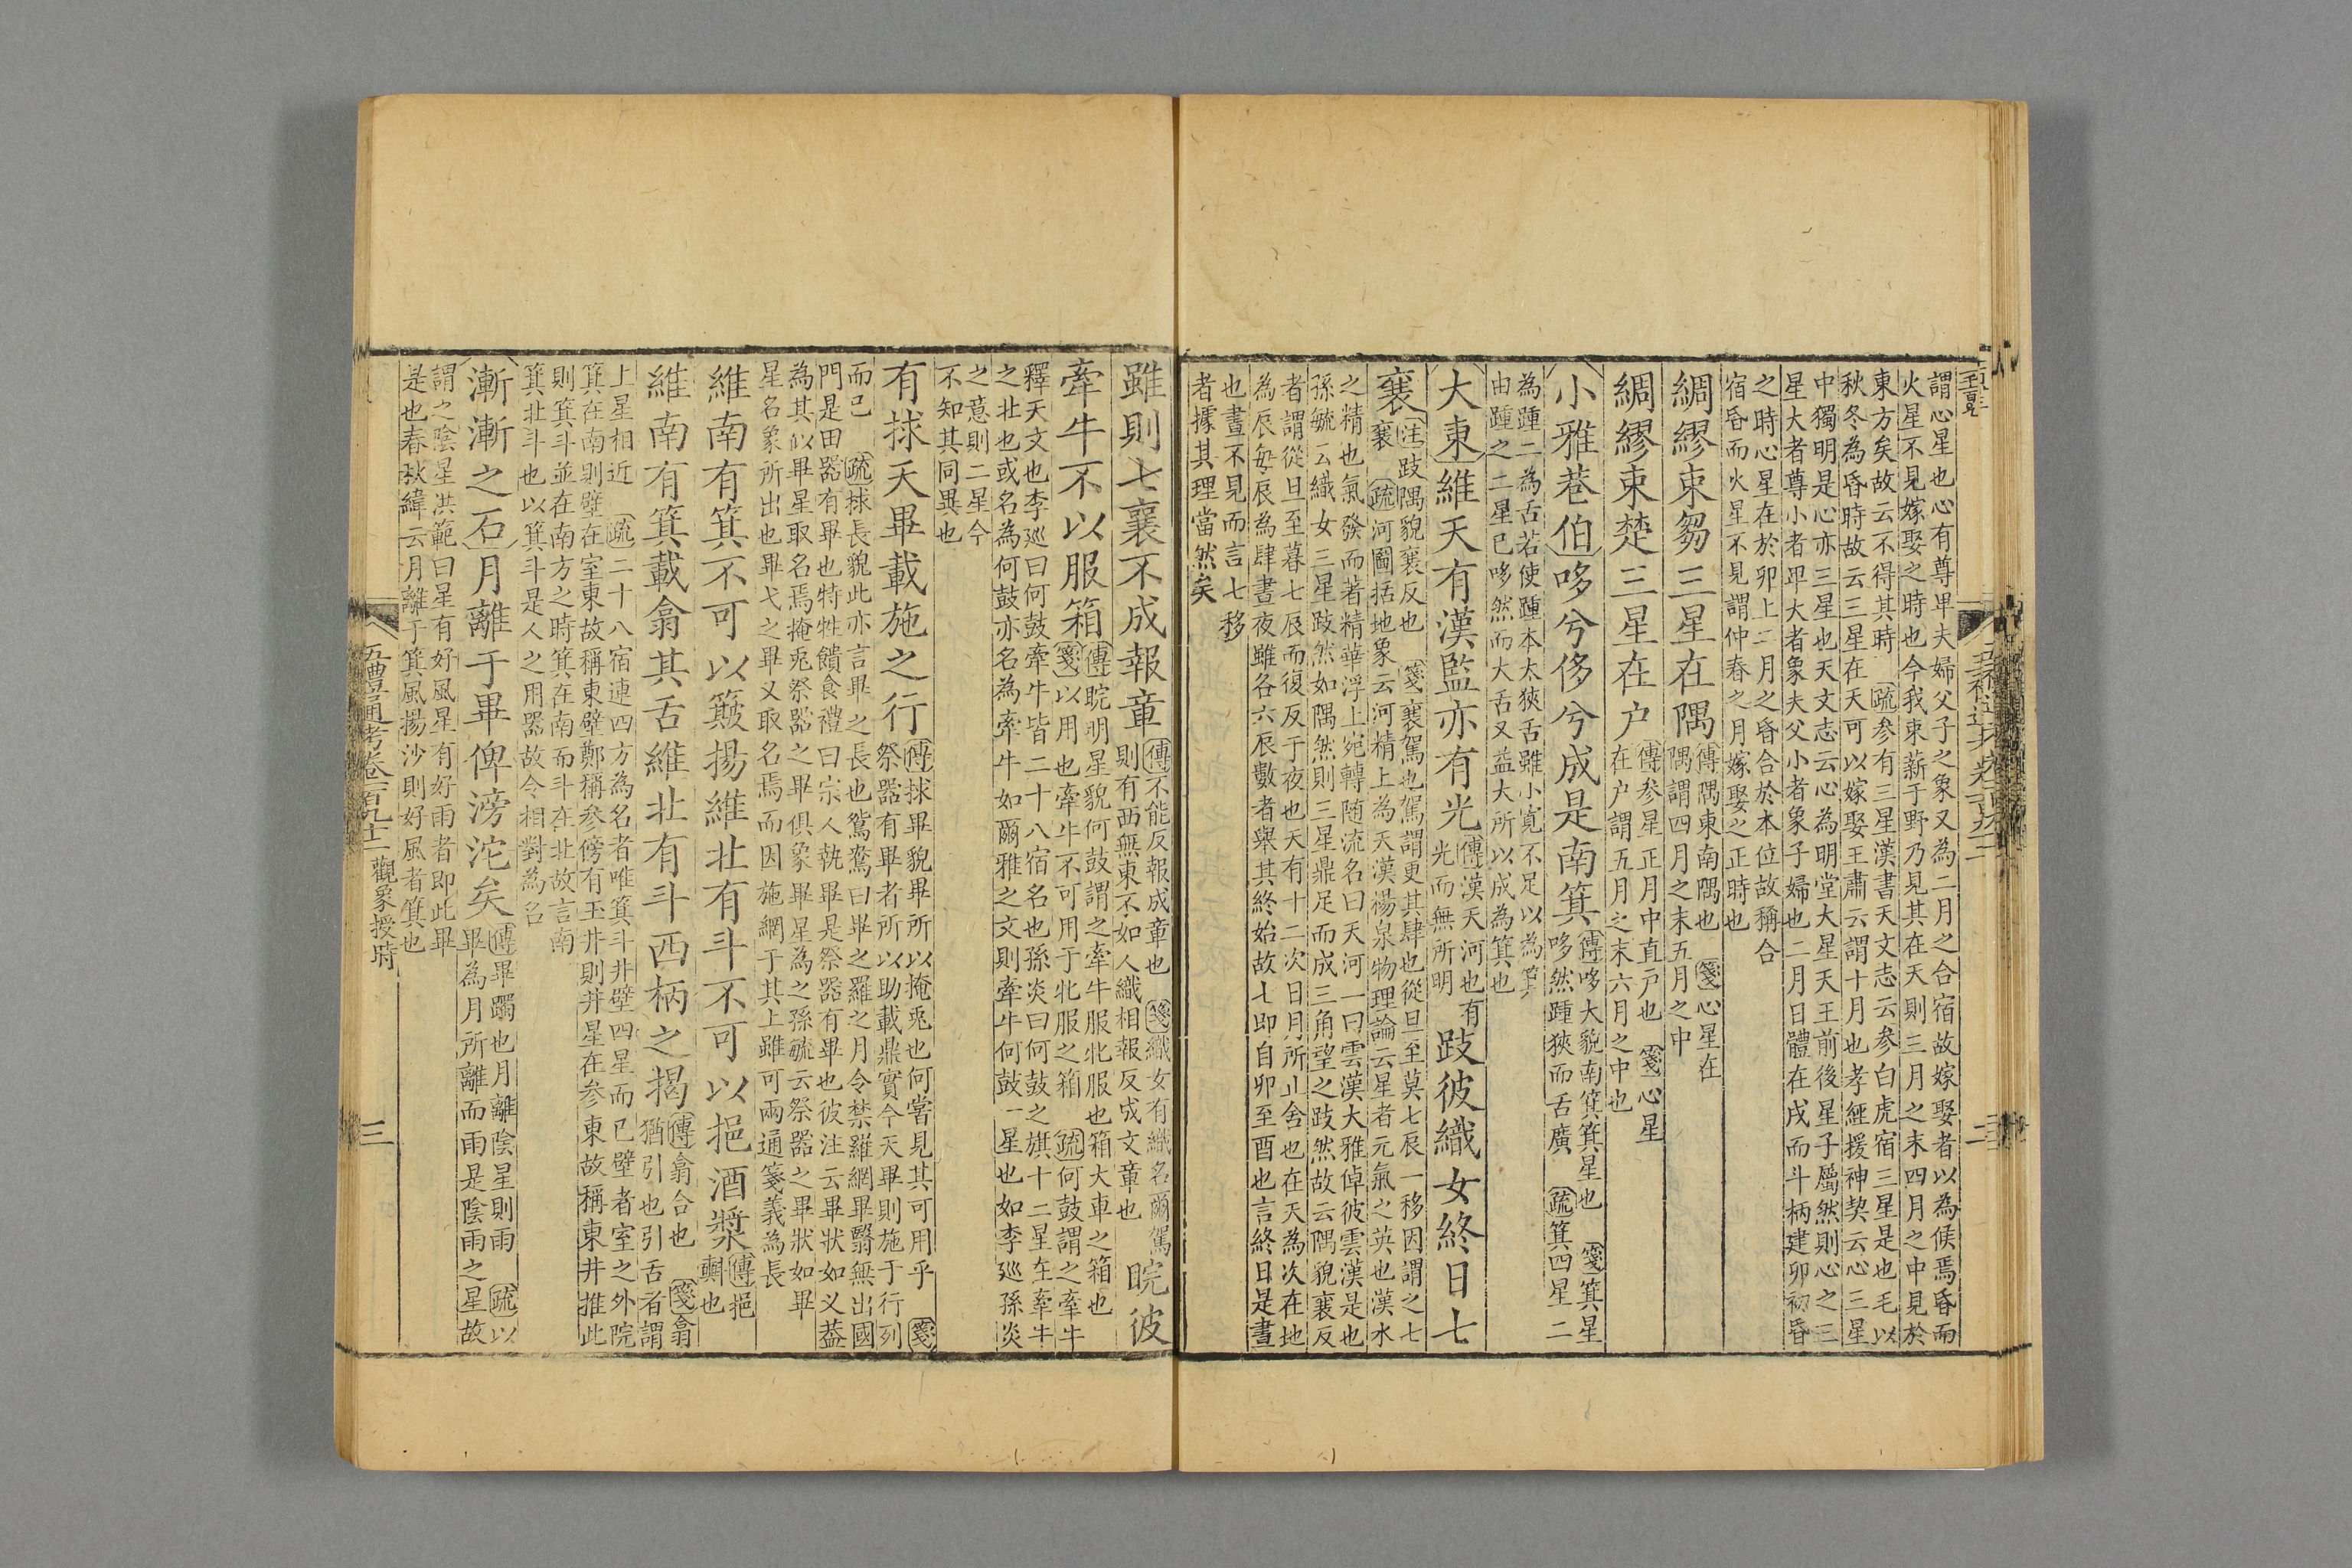 謂心星也心有尊卑夫婦父子之象又為二月之合宿故嫁娶者以為候焉昏而
火星不見嫁娶之時也今我束薪于野乃見其在天則三月之末四月之中見於
東方矣故云不得其時 疏參有三星漢書天文志云參白虎宿三星是也毛以
秋冬為昏時故云三星在天可以嫁娶王肅云謂十月也孝經援神契云心三星
中獨明是心亦三星也天文志云心為明堂大星天王前後星子屬然則心之三
星大者尊小者卑大者象夫父小者象子婦也二月日體在戌而斗柄建卯初昏
之時心星在於卯上二月之昏合於本位故稱合
宿昏而火星不見謂仲春之月嫁娶之正時也
綢繆束芻三星在隅
傳隅東南隅也 箋心星在
隅謂四月之末五月之中
綢繆束楚三星在户
傳參星正月中直戸也 箋心星
在户謂五月之末六月之中也
小雅巷伯哆兮侈兮成是南箕
傳哆大貌南箕箕星也 箋箕星
哆然踵狹而舌廣 疏箕四星二
為踵二為舌若使踵本太狹舌雖小寛不足以為箕
由踵之二星已哆然而大舌又益大所以成為箕也
大東維天有漢監亦有光
傳漢天河也有
光而無所明
跂彼織女終日七
襄
注跂隅貌襄反也 箋襄駕也駕謂更其肆也從旦至莫七辰一移因謂之七
襄 疏河圖括地象云河精上為天漢楊泉物理論云星者元氣之英也漢水
之精也氣發而著精華浮上宛轉随流名曰天河一曰雲漢大雅倬彼雲漢是也
孫毓云織女三星跂然如隅然則三星鼎足而成三角望之跂然故云隅貌襄反
者謂從旦至暮七辰而復反于夜也天有十二次日月所止舍也在天為次在地
為辰每辰為肆晝夜雖各六辰數者舉其終始故七即自卯至酉也言終日是晝
也晝不見而言七移
者據其理當然矣
雖則七襄不成報章
傳不能反報成章也 箋織女有織名爾駕
則有西無東不如人織相報反成文章也
睆彼
牽牛不以服箱
傳睆明星貌何鼓謂之牽牛服牝服也箱大車之箱也
箋以用也牽牛不可用于牝服之箱 疏何鼓謂之牽牛
釋天文也李巡曰何鼓牽牛皆二十八宿名也孫炎曰何鼓之旗十二星在牽牛
之北也或名為何鼓亦名為牽牛如爾雅之文則牽牛何鼓一星也如李巡孫炎
之意則二星今
不知其同異也
有捄天畢載施之行
傳捄畢貌畢所以掩兎也何嘗見其可用乎 箋
祭器有畢者所以助載鼎實今天畢則施于行列
而已 疏捄長貌此亦言畢之長也鴛鴦曰畢之羅之月令禁羅網畢翳無出國
門是田器有畢也特牲饋食禮曰宗人執畢是祭器有畢也彼注云畢狀如义葢
為其似畢星取名焉掩兎祭器之畢俱象畢星為之孫毓云祭器之畢狀如畢
星名象所出也畢弋之畢又取名焉而因施網于其上雖可兩通箋義為長
維南有箕不可以簸揚維北有斗不可以挹酒漿
傳挹
㪺也
維南有箕載翕其舌維北有斗西柄之揭
傳翕合也 箋翕
猶引也引舌者謂
上星相近 疏二十八宿連四方為名者唯箕斗井壁四星而已壁者室之外院
箕在南則壁在室東故稱東壁鄭稱參傍有玉井則井星在參東故稱東井推此
則箕斗並在南方之時箕在南而斗在北故言南
箕北斗也以箕斗是人之用器故令相對為名
漸漸之石月離于畢俾滂沱矣
傳畢躅也月離陰星則雨 疏以
畢為月所離而雨是陰雨之星故
謂之陰星洪範曰星有好風星有好雨者即此畢
是也春秋緯云月離于箕風揚沙則好風者箕也
五禮通考卷一百九十二 觀象授時 三